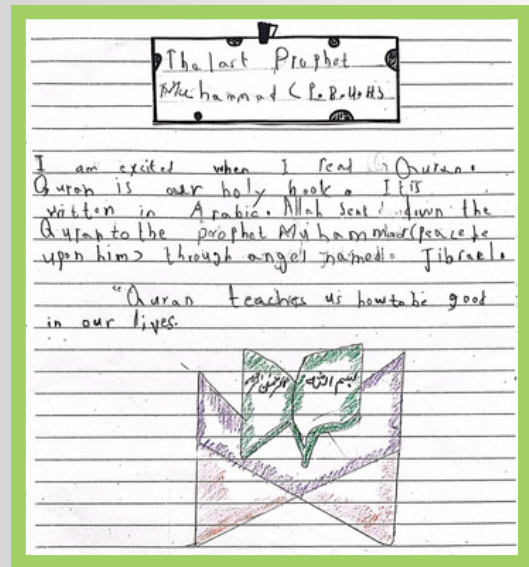 The last Prophet
Muhammad (P.B.U.H)
I am excited when I read Quran.
Quran is our holy book. It is
written in Arabic. Allah sent down the
Quran to the prophet Muhammad (peace be
upon him) through angel named. Jibrael.
"Quran teaches us how to be good
in our lives.
بسم الله
الرحمن الرحيم